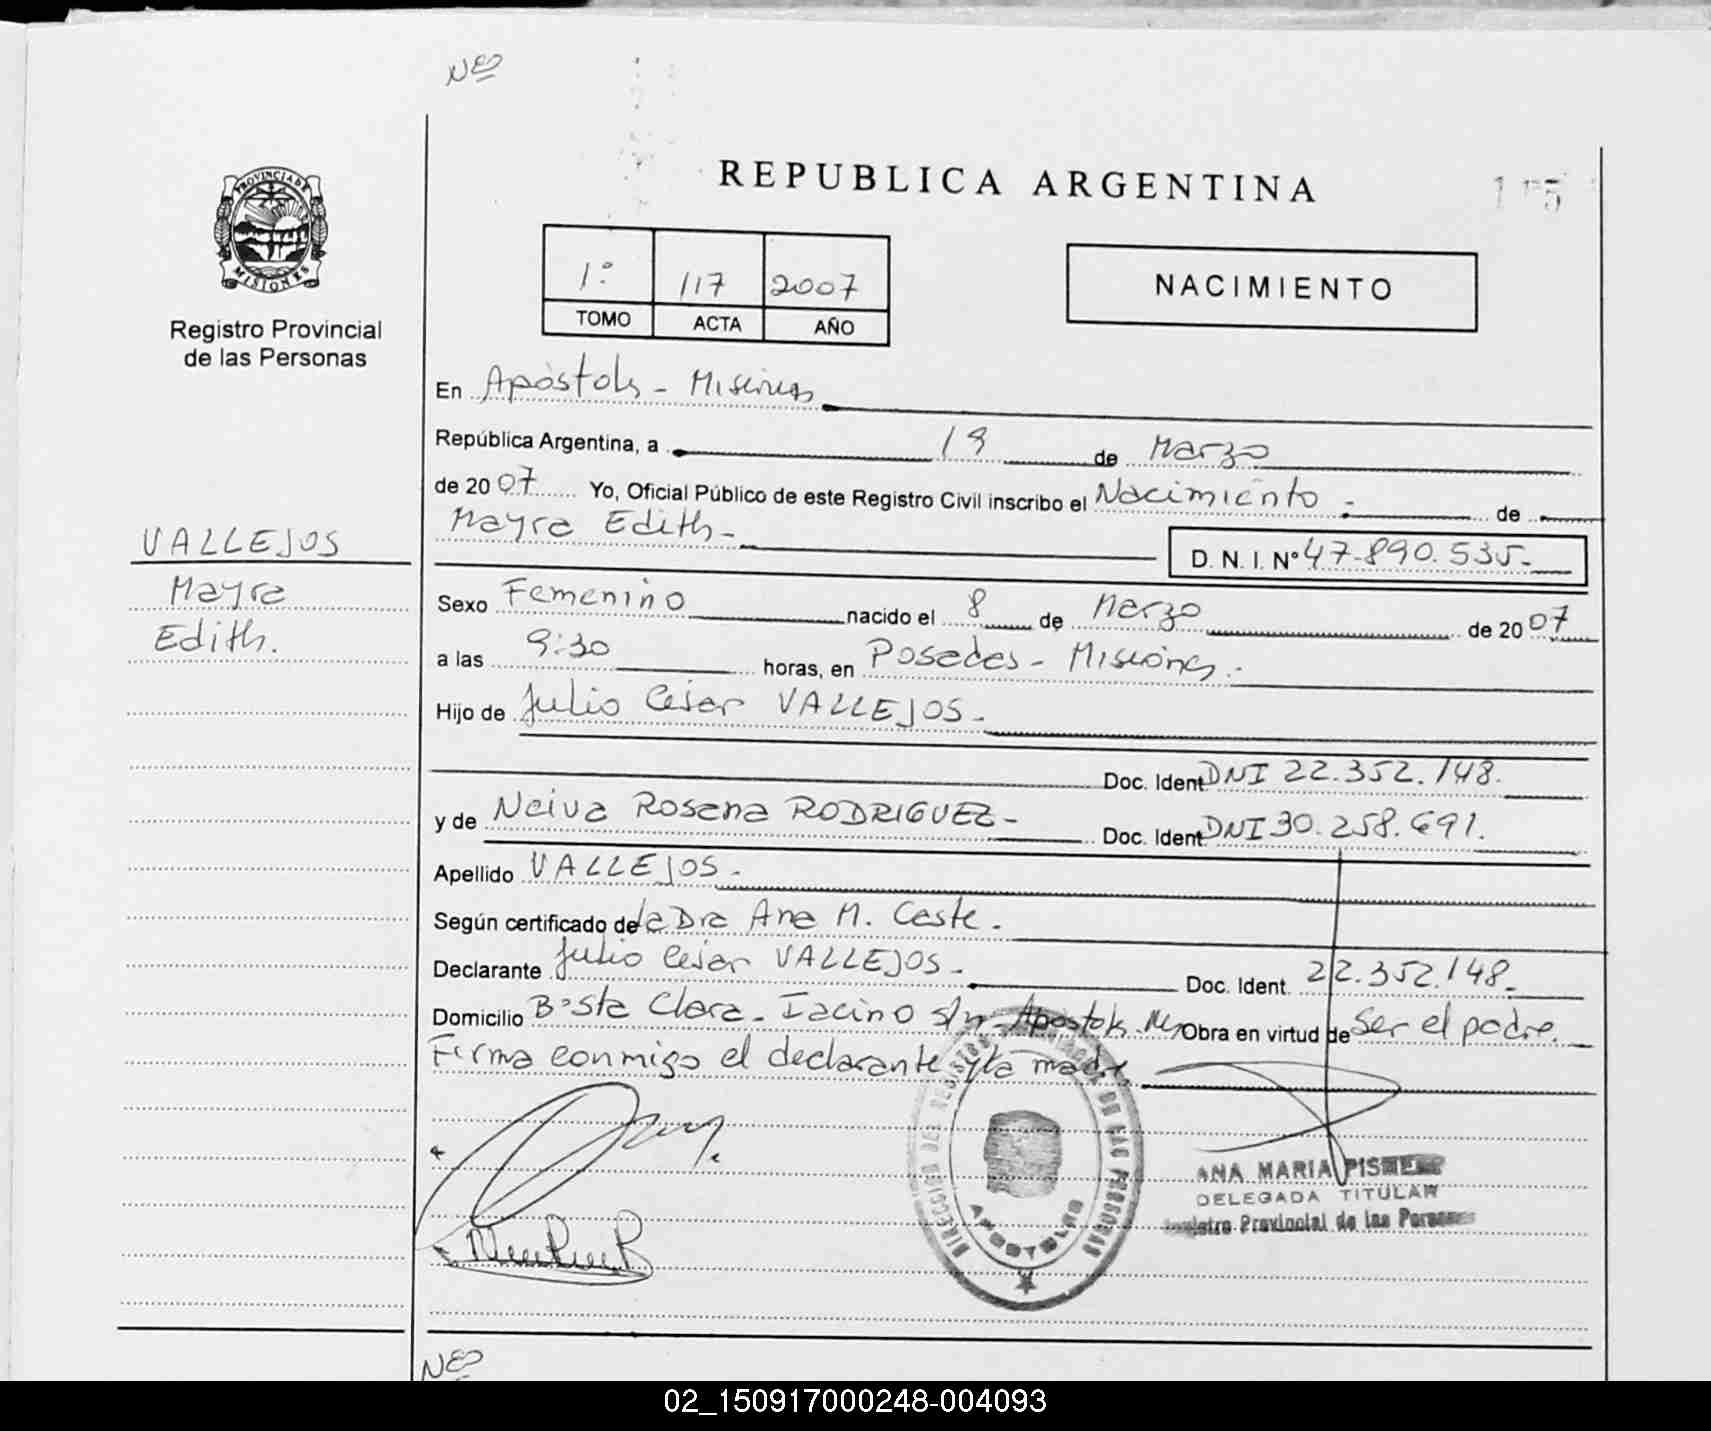 NEO
PROVINCIA DE
MISIONES
Registro Provincial
de las Personas
REPUBLICA ARGENTINA
1º 117 2007
TOMO ACTA AÑO
NACIMIENTO
En Apóstoles - Misiones
República Argentina, a 19 de Marzo
de 2007 Yo, Oficial Público de este Registro Civil inscribo el Nacimiento - de
Mayra Edith -
D. N. I. Nº 47.890.535-
VALLEJOS
Mayra
Edith.
Sexo Femenino nacido el 8 de Marzo de 2007
a las 9:30 horas, en Posadas - Misiones.
Hijo de Julio César VALLEJOS -
Doc. Ident DNI 22.352.148.
y de Neiva Rosana RODRIGUEZ - Doc. Ident DNI 30.258.691.
Apellido VALLEJOS -
Según certificado de la Dra Ana M. Caste.
Declarante Julio César VALLEJOS - Doc. Ident. 22.352.148-
Domicilio Bº Sta Clara - s/n - Apóstoles Obra en virtud de Ser el padre.
Firma conmigo el declarante y la madre
DIRECCION DEL REGISTRO PROVINCIAL DE LAS PERSONAS
APOSTOLES
ANA MARIA
DELEGADA TITULAR
Registro Provincial de las Personas
NEO
02_150917000248-004093